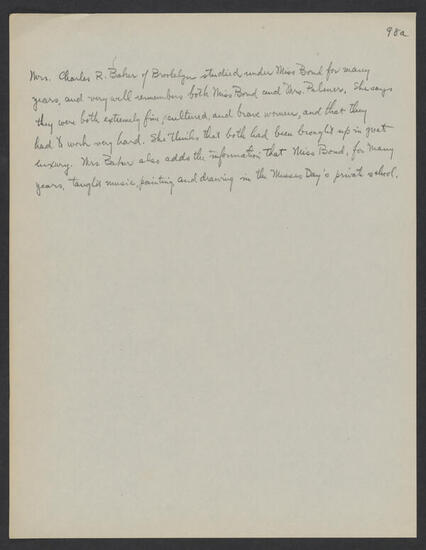 98a
Mrs. Charles R. Baker of Brooklyn studied under Miss Bond for many
years, and very well remembers both Miss Bond and Mrs. Palmer. She says
they were both extremely fine, cultured, and brave women, and that they
had to work very hard. She thinks that both had been brought up in great
luxury. Mrs Baker also adds the information that Miss Bond, for many
years, taught music, painting and drawing in the Misses Day's private school.